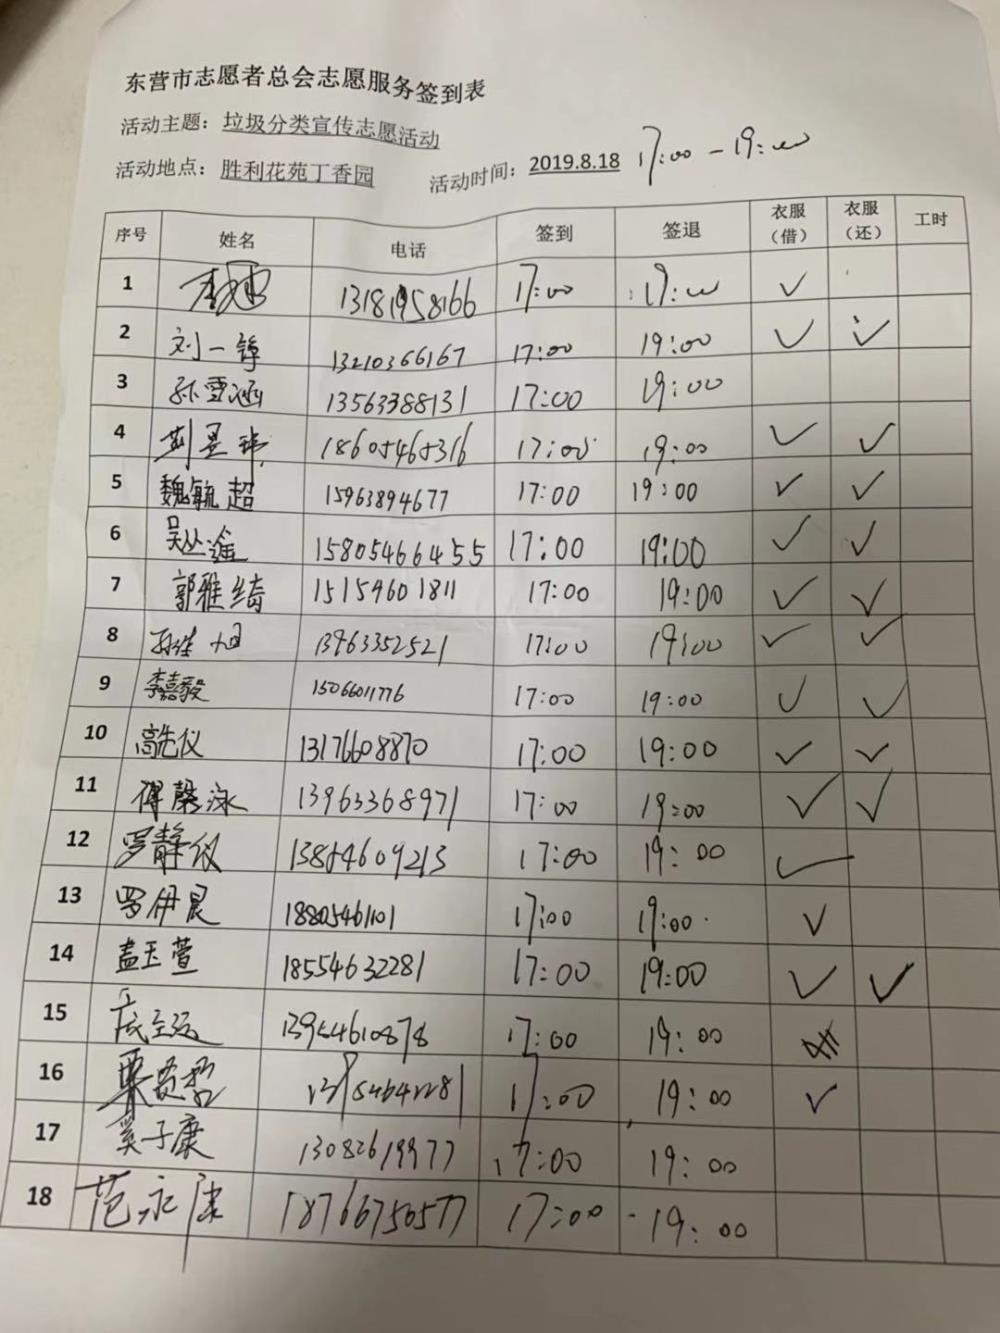 东营市志愿者总会志愿服务签到表
活动主题：垃圾分类宣传志愿活动
活动地点：胜利花苑丁香园 活动时间：2019.8.18 17:00-19:00
序号 姓名 电话 签到 签退 衣服（借） 衣服（还） 工时
1 17:00 19:00 ✓
2 刘一铮 13210366167 17:00 19:00 ✓ ✓
3 孙雪涵 13563388131 17:00 19:00
4 18605465316 17:00 19:00 ✓ ✓
5 魏毓超 15963894677 17:00 19:00 ✓ ✓
6 15805466455 17:00 19:00 ✓ ✓
7 郭雅绮 15154601811 17:00 19:00 ✓ ✓
8 13963352521 17:00 19:00 ✓ ✓
9 李嘉毅 15066011776 17:00 19:00 ✓ ✓
10 高先仪 13176608870 17:00 19:00 ✓ ✓
11 傅馨泳 13963368971 17:00 19:00 ✓ ✓
12 罗静仪 13854609213 17:00 19:00 ✓
13 罗伊晨 18805461101 17:00 19:00 ✓
14 孟玉萱 18554632281 17:00 19:00 ✓ ✓
15 13954610878 17:00 19:00
16 17:00 19:00 ✓
17 奚子康 13082619977 17:00 19:00
18 范永康 18766750577 17:00 19:00